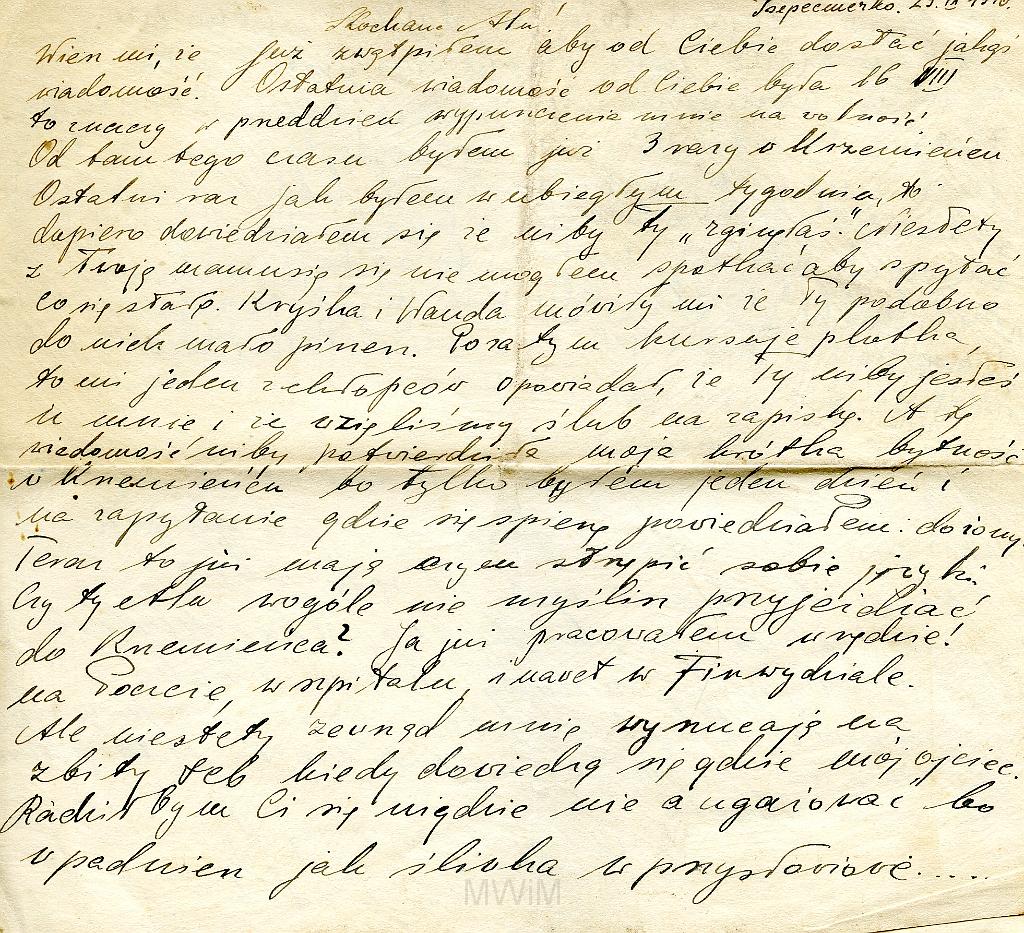 23. IX 1940.
Kochana Alu!
Wierz mi, że już zwątpiłem aby od Ciebie dostać jakąś
wiadomość. Ostatnia wiadomość od Ciebie była 16 VIII
to znaczy w przeddzień wypuszczenia mnie na wolność
Od tamtego czasu byłem już 3 razy w Krzemieńcu
Ostatni raz jak byłem w ubiegłym tygodniu, to
dopiero dowiedziałem się że niby ty „zginęłaś”. Niestety
z Twoją mamusią się nie mogłem spotkać aby spytać
co się stało. Kryśka i Wanda mówiły mi że Ty podobno
do nich mało piszesz. Poza tym kursuje plotka,
to mi jeden z chłopców opowiadał, że Ty niby jesteś
u mnie i że wzięliśmy ślub na zapiskę. A tę
wiadomość niby potwierdziła moja krótka bytność
w Krzemieńcu bo tylko byłem jeden dzień i
na zapytanie gdzie się spieszę powiedziałem: do żony.
Teraz to już mają czym strzępić sobie języki.
Czy ty Alu wogóle nie myślisz przyjeżdżać
do Krzemieńca? Ja już pracowałem wszędzie!
na Poczcie, w szpitalu, i nawet w Finwydziale.
Ale niestety zewsząd mnie wyrzucają na
zbity łeb kiedy dowiedzą się gdzie mój ojciec.
Radził bym Ci się nigdzie nie angażować bo
wpadniesz jak śliwka w przysłowiowe.....
MWiM